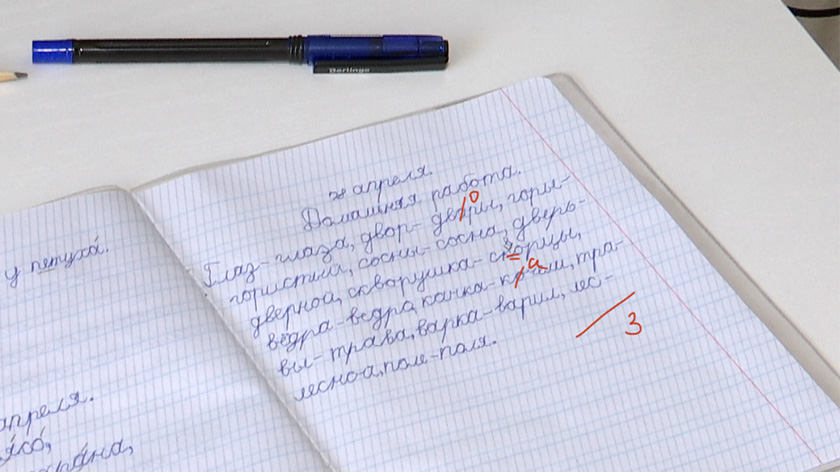 Berlingo
у петуха́.
апреля.
28 апреля.
Домашняя работа.
Глаз-глаза, двор-двори, горы-
гористый, сосны-сосна, дверь-
дверной, скворушка-скворцы,
вёдра-ведра, качка-качи, тра-
вы-трава, варка-варил, лес-
лесно-а, поле-поля.
о
а
3